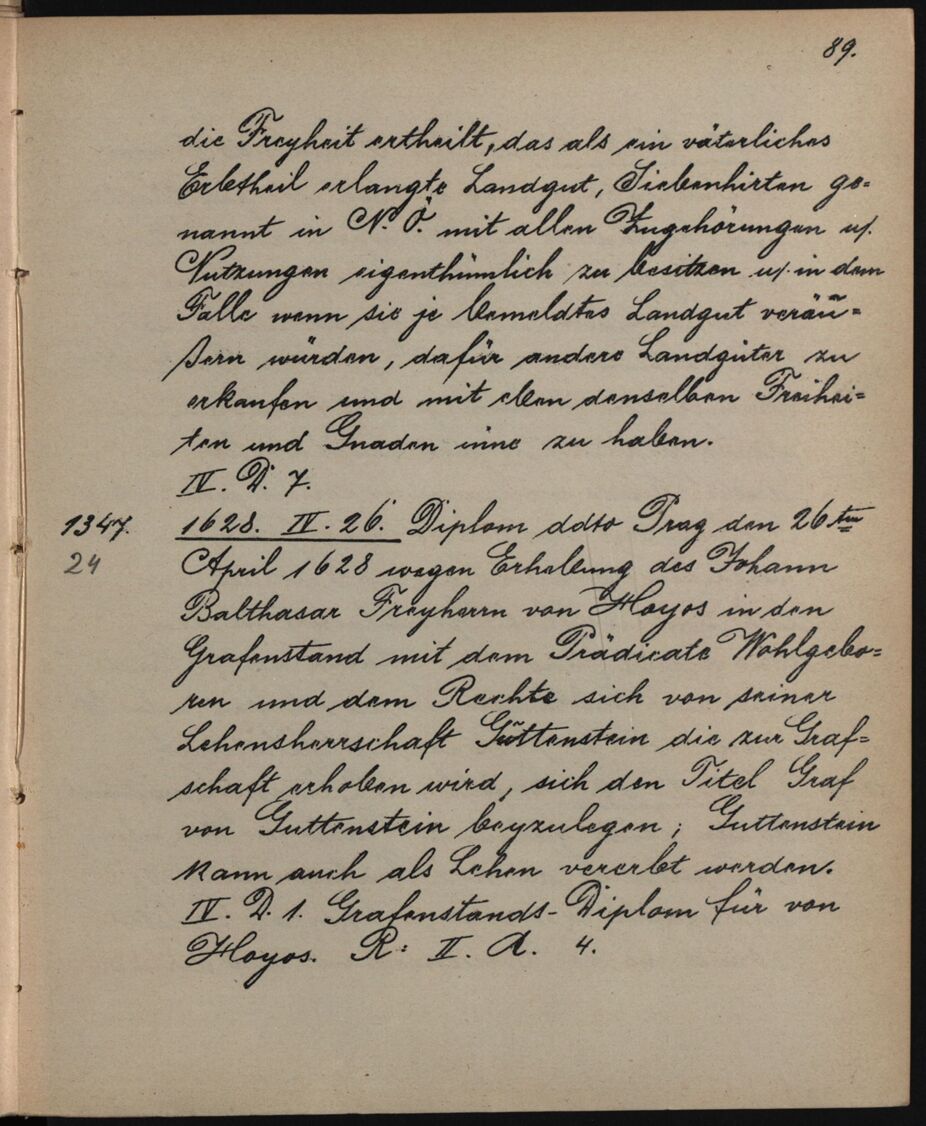 89.
die Freyheit ertheilt, das als ein väterliches
Erbtheil erlangte Landgut, Siebenhirten ge=
nannt in N. Ö. mit allen Zugehörungen u/.
Nutzungen eigenthümlich zu besitzen u/. in dem
Falle wenn sie je bemeldtes Landgut veräu=
ßern würden, dafür andere Landgüter zu
erkaufen und mit eben denselben Freihei=
ten und Gnaden inne zu haben.
IV. D. 7.
1347. 1628. IV. 26. Diplom ddto Prag den 26ten
24 April 1628 wegen Erhebung des Johann
Balthasar Freyherrn von Hoyos in den
Grafenstand mit dem Prädicate Wohlgebo=
ren und dem Rechte sich von seiner
Lehensherrschaft Guttenstein die zur Graf=
schaft erhoben wird, sich den Titel Graf
von Guttenstein beyzulegen; Guttenstein
kann auch als Lehen vererbt werden.
IV. D. 1. Grafenstands-Diplom für von
Hoyos. R: II. A. 4.